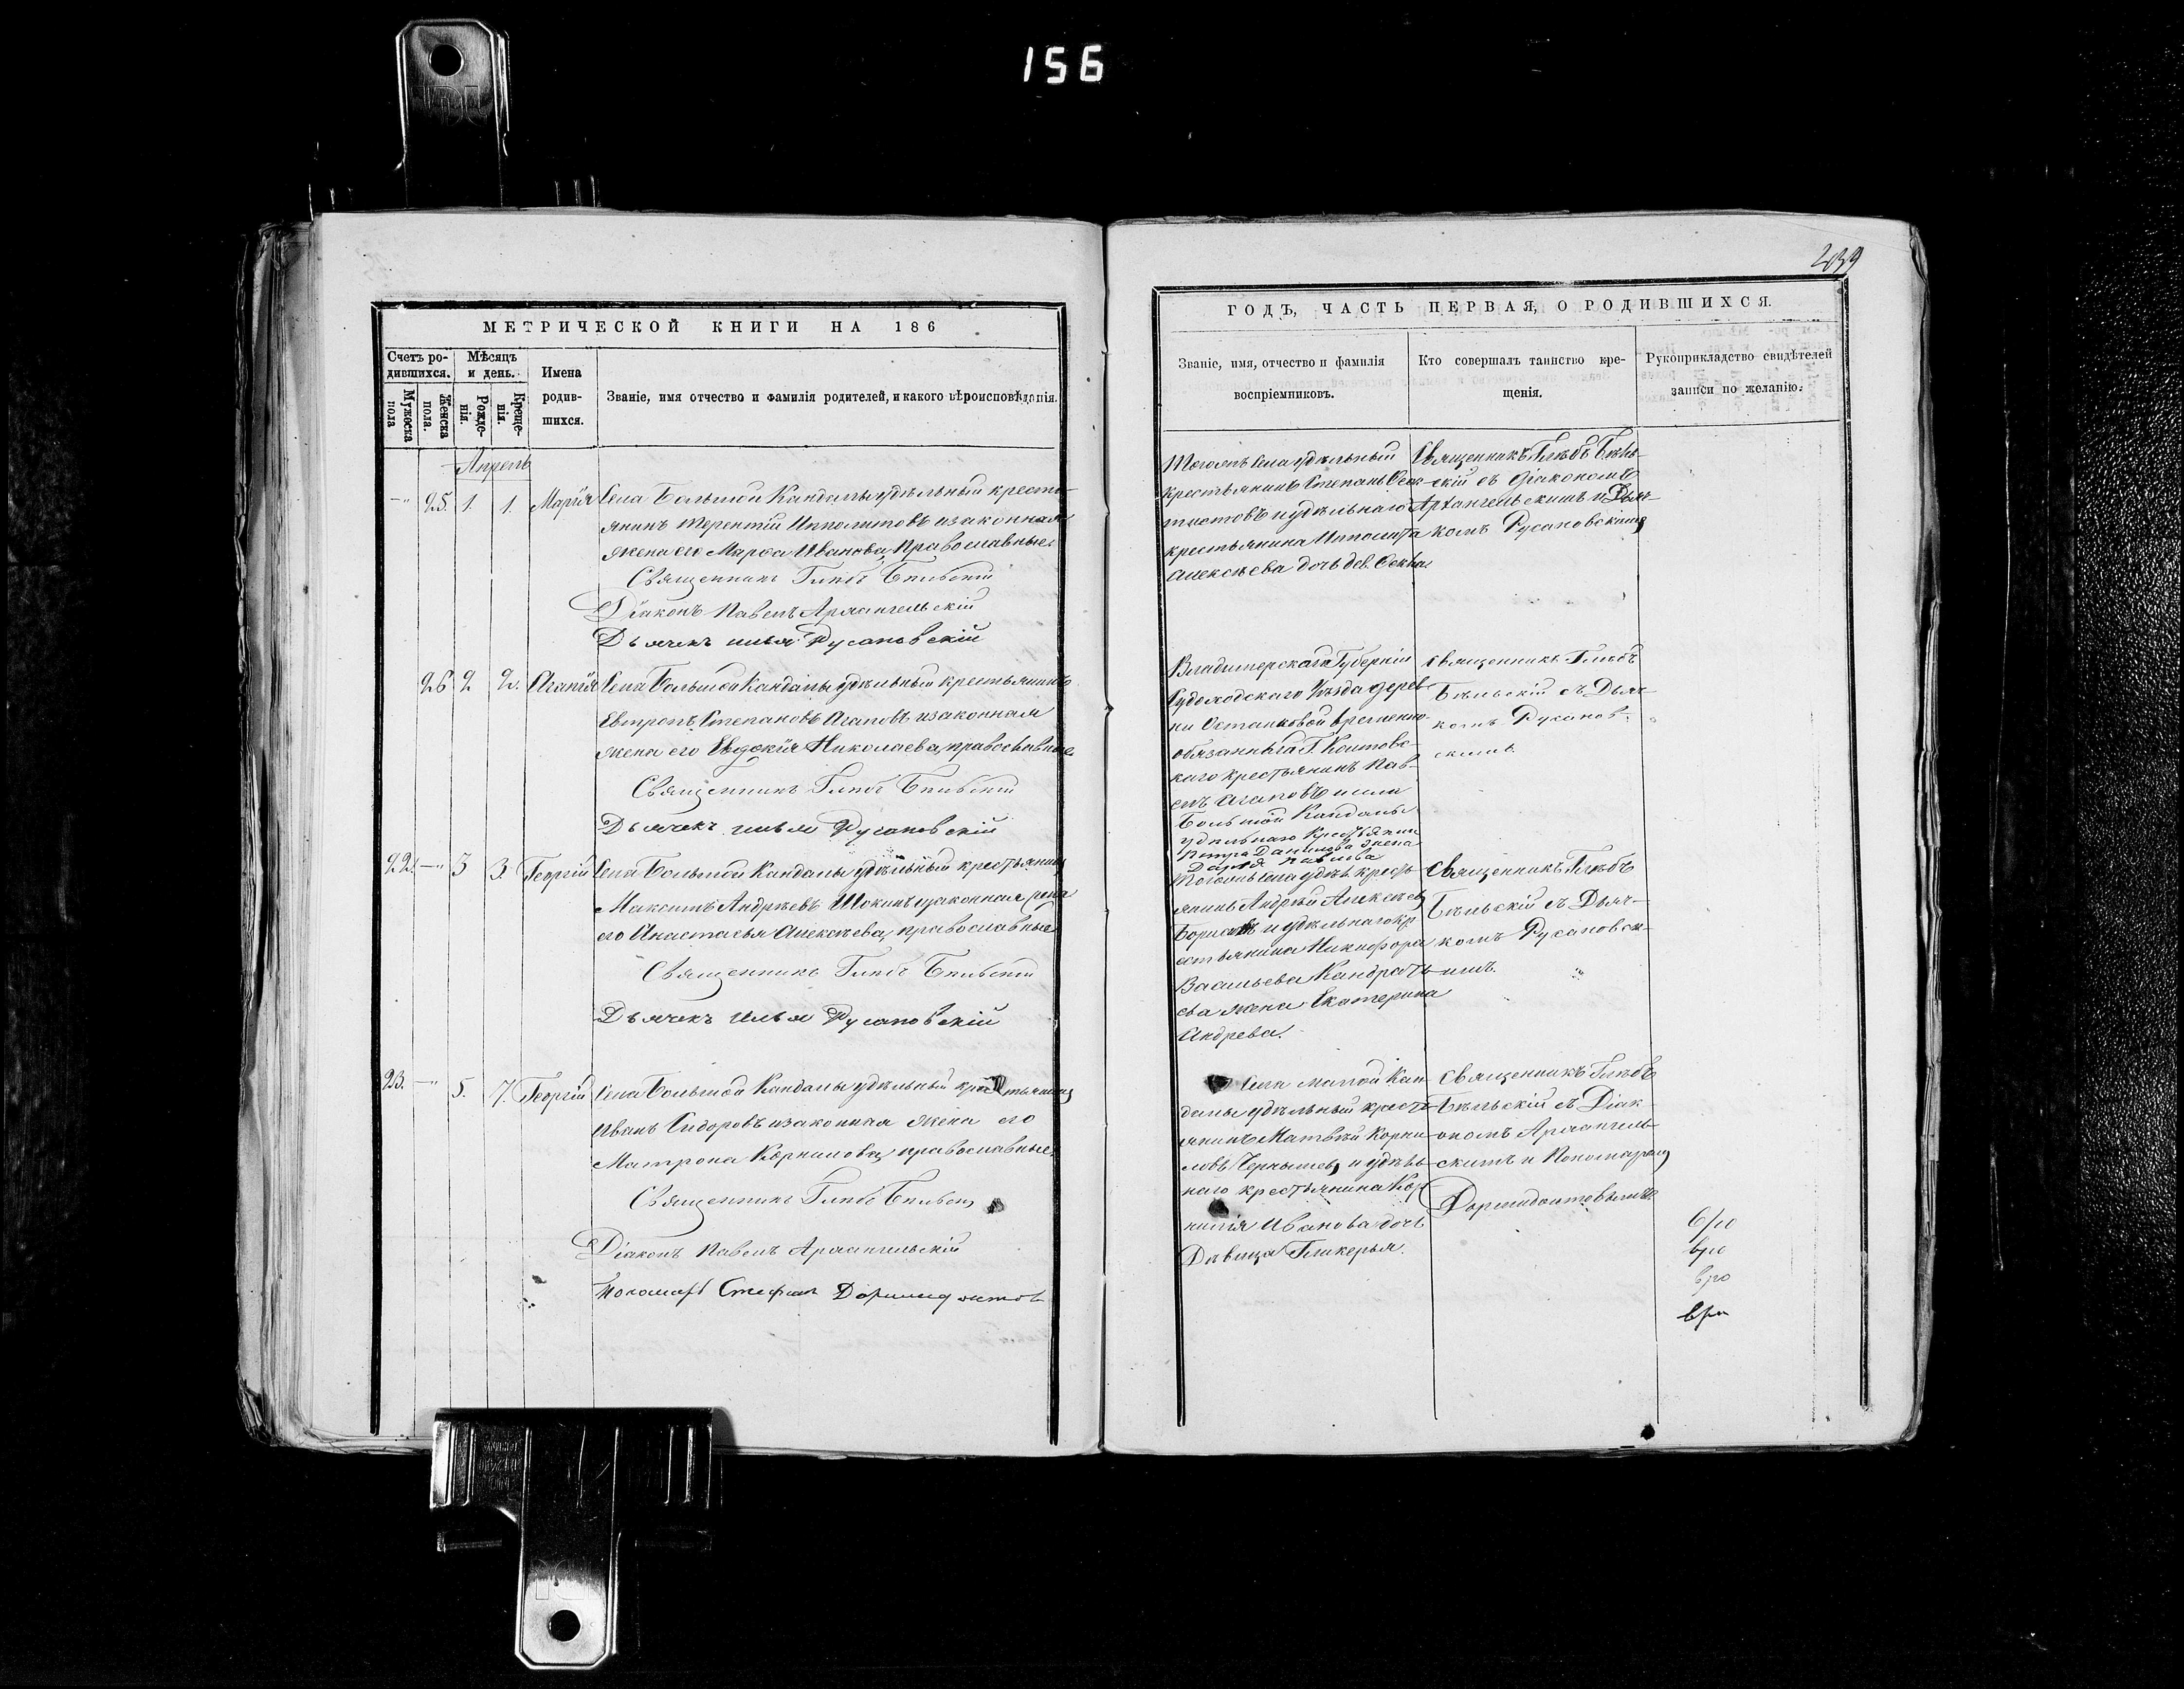 156
239
МЕТРИЧЕСКОЙ КНИГИ НА 186
Счетъ ро-
дившихся.
Мѣсяцъ
и день.
Имена
родив-
шихся.
Званіе, имя отчество и фамилія родителей, и какого вѣроисповѣданія.
Мужеска
пола
Женска
пола.
Рожде-
нія.
Креще-
нія.
Апрель
25. 1. 1. Марія Села Большой Кандалы удѣльный кресть-
янинъ Терентій Ипполитовъ и законная
жена его Марѳа Иванова, Православные.
Священникъ Глѣбъ Бѣльскій
Діаконъ Павелъ Архангельскій
Дьячекъ Илья Русановскій
26 2 2. Агапія Села Большой Кандалы удѣльный крестьянинъ
Евтропъ Степановъ Агаповъ и законная
жена его Евдокія Николаева, православные
Священникъ Глѣбъ Бѣльскій
Дьячекъ Илья Русановскій
22. 3 3 Георгій Села Большой Кандалы удѣльный крестьянинъ
Максимъ Андреевъ Шокинъ и законная жена
его Анастасья Алексѣева, православные
Священникъ Глѣбъ Бѣльскій
Дьячекъ Илья Русановскій
23. 5. 7. Георгій Села Большой Кандалы удѣльный крестьянинъ
Иванъ Сидоровъ и законная жена его
Матрона Корнилова, православные.
Священникъ Глѣбъ Бѣльскій
Діаконъ Павелъ Архангельскій
Пономарь Стефан Дормидонтов
ГОДЪ, ЧАСТЬ ПЕРВАЯ, О РОДИВШИХСЯ.
Званіе, имя, отчество и фамилія
воспріемниковъ.
Кто совершалъ таинство кре-
щенія.
Рукоприкладство свидѣтелей
записи по желанію.
Тогожъ села удѣльный
крестьянинъ Степанъ
и удѣльнаго
крестьянина Ипполита
Алексѣева дочь дев.
Священникъ Глѣбъ Бѣль-
скій съ Діакономъ
Архангельскимъ и Дьяч-
комъ Русановскимъ
Владимерской Губерніи
Судогодскаго Уѣзда дерев-
ни временно-
обязанный Г.
каго крестьянинъ Пав-
елъ Агаповъ и села
Большой Кандалы
удѣльнаго крестьянина
Петра Данилова жена
Дарья Павлова
Священникъ Глѣбъ
Бѣльскій съ Дьяч-
комъ Русанов-
скимъ
Тогожъ села удѣл. кресть-
янинъ Андрей Алексѣевъ
Борисовъ и удѣльнаго кр-
естьянина Никифора
Васильева Кандрать-
ева жена Екатерина
Андрева.
Священникъ Глѣбъ
Бѣльскій съ Дьяч-
комъ Русановск-
имъ.
Села малой Кан-
далы удѣльный кресть-
янинъ Матвѣй Корни-
ловъ Чернышев и удѣль-
наго крестьянина Кор-
нилія Иванова дочь
Дѣвица Гликерья.
Священникъ Глѣбъ
Бѣльскій съ Діак-
ономъ Архангель-
скимъ и Пономаремъ
Дормидонтовымъ